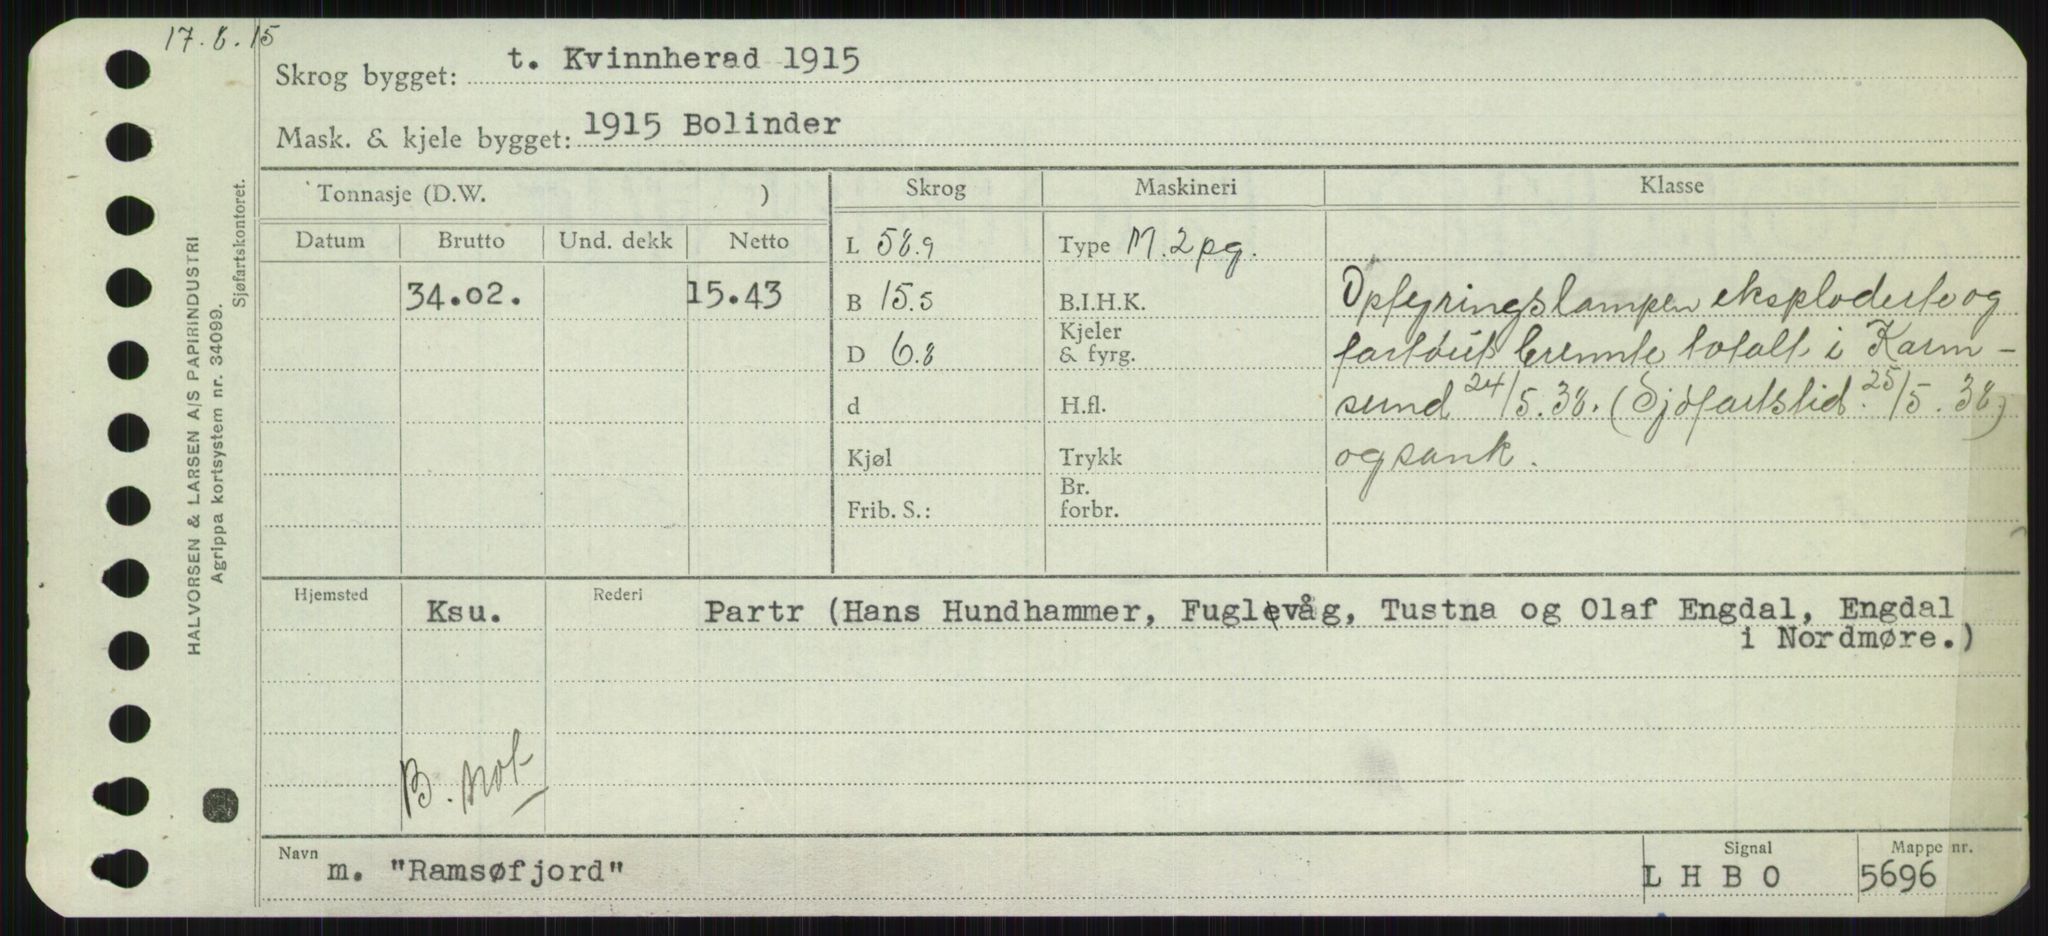 17.8.15
Skrog bygget: t. Kvinnherad 1915
Mask. & kjele bygget: 1915 Bolinder
Tonnasje (D.W. ) Skrog Maskineri Klasse
Datum Brutto Und. dekk Netto L 58.9 Type M. 2 pg.
34.02. 15.43 B 15.5 B.I.H.K. Opfyringslampen eksploderte og
D 6.8 Kjeler & fyrg. fartöiet brennte totalt i Karm-
d H.fl. sund 24/5.38. (Sjöfartstid. 25/5.38)
Kjøl Trykk og sank.
Frib. S.: Br. forbr.
Hjemsted Ksu. Rederi Partr (Hans Hundhammer, Fuglevåg, Tustna og Olaf Engdal, Engdal
i Nordmøre.)
B. not
Navn m. "Ramsøfjord" Signal L H B O Mappe nr. 5696
HALVORSEN & LARSEN A/S PAPIRINDUSTRI
Agrippa kortsystem nr. 34099.
Sjøfartskontoret.